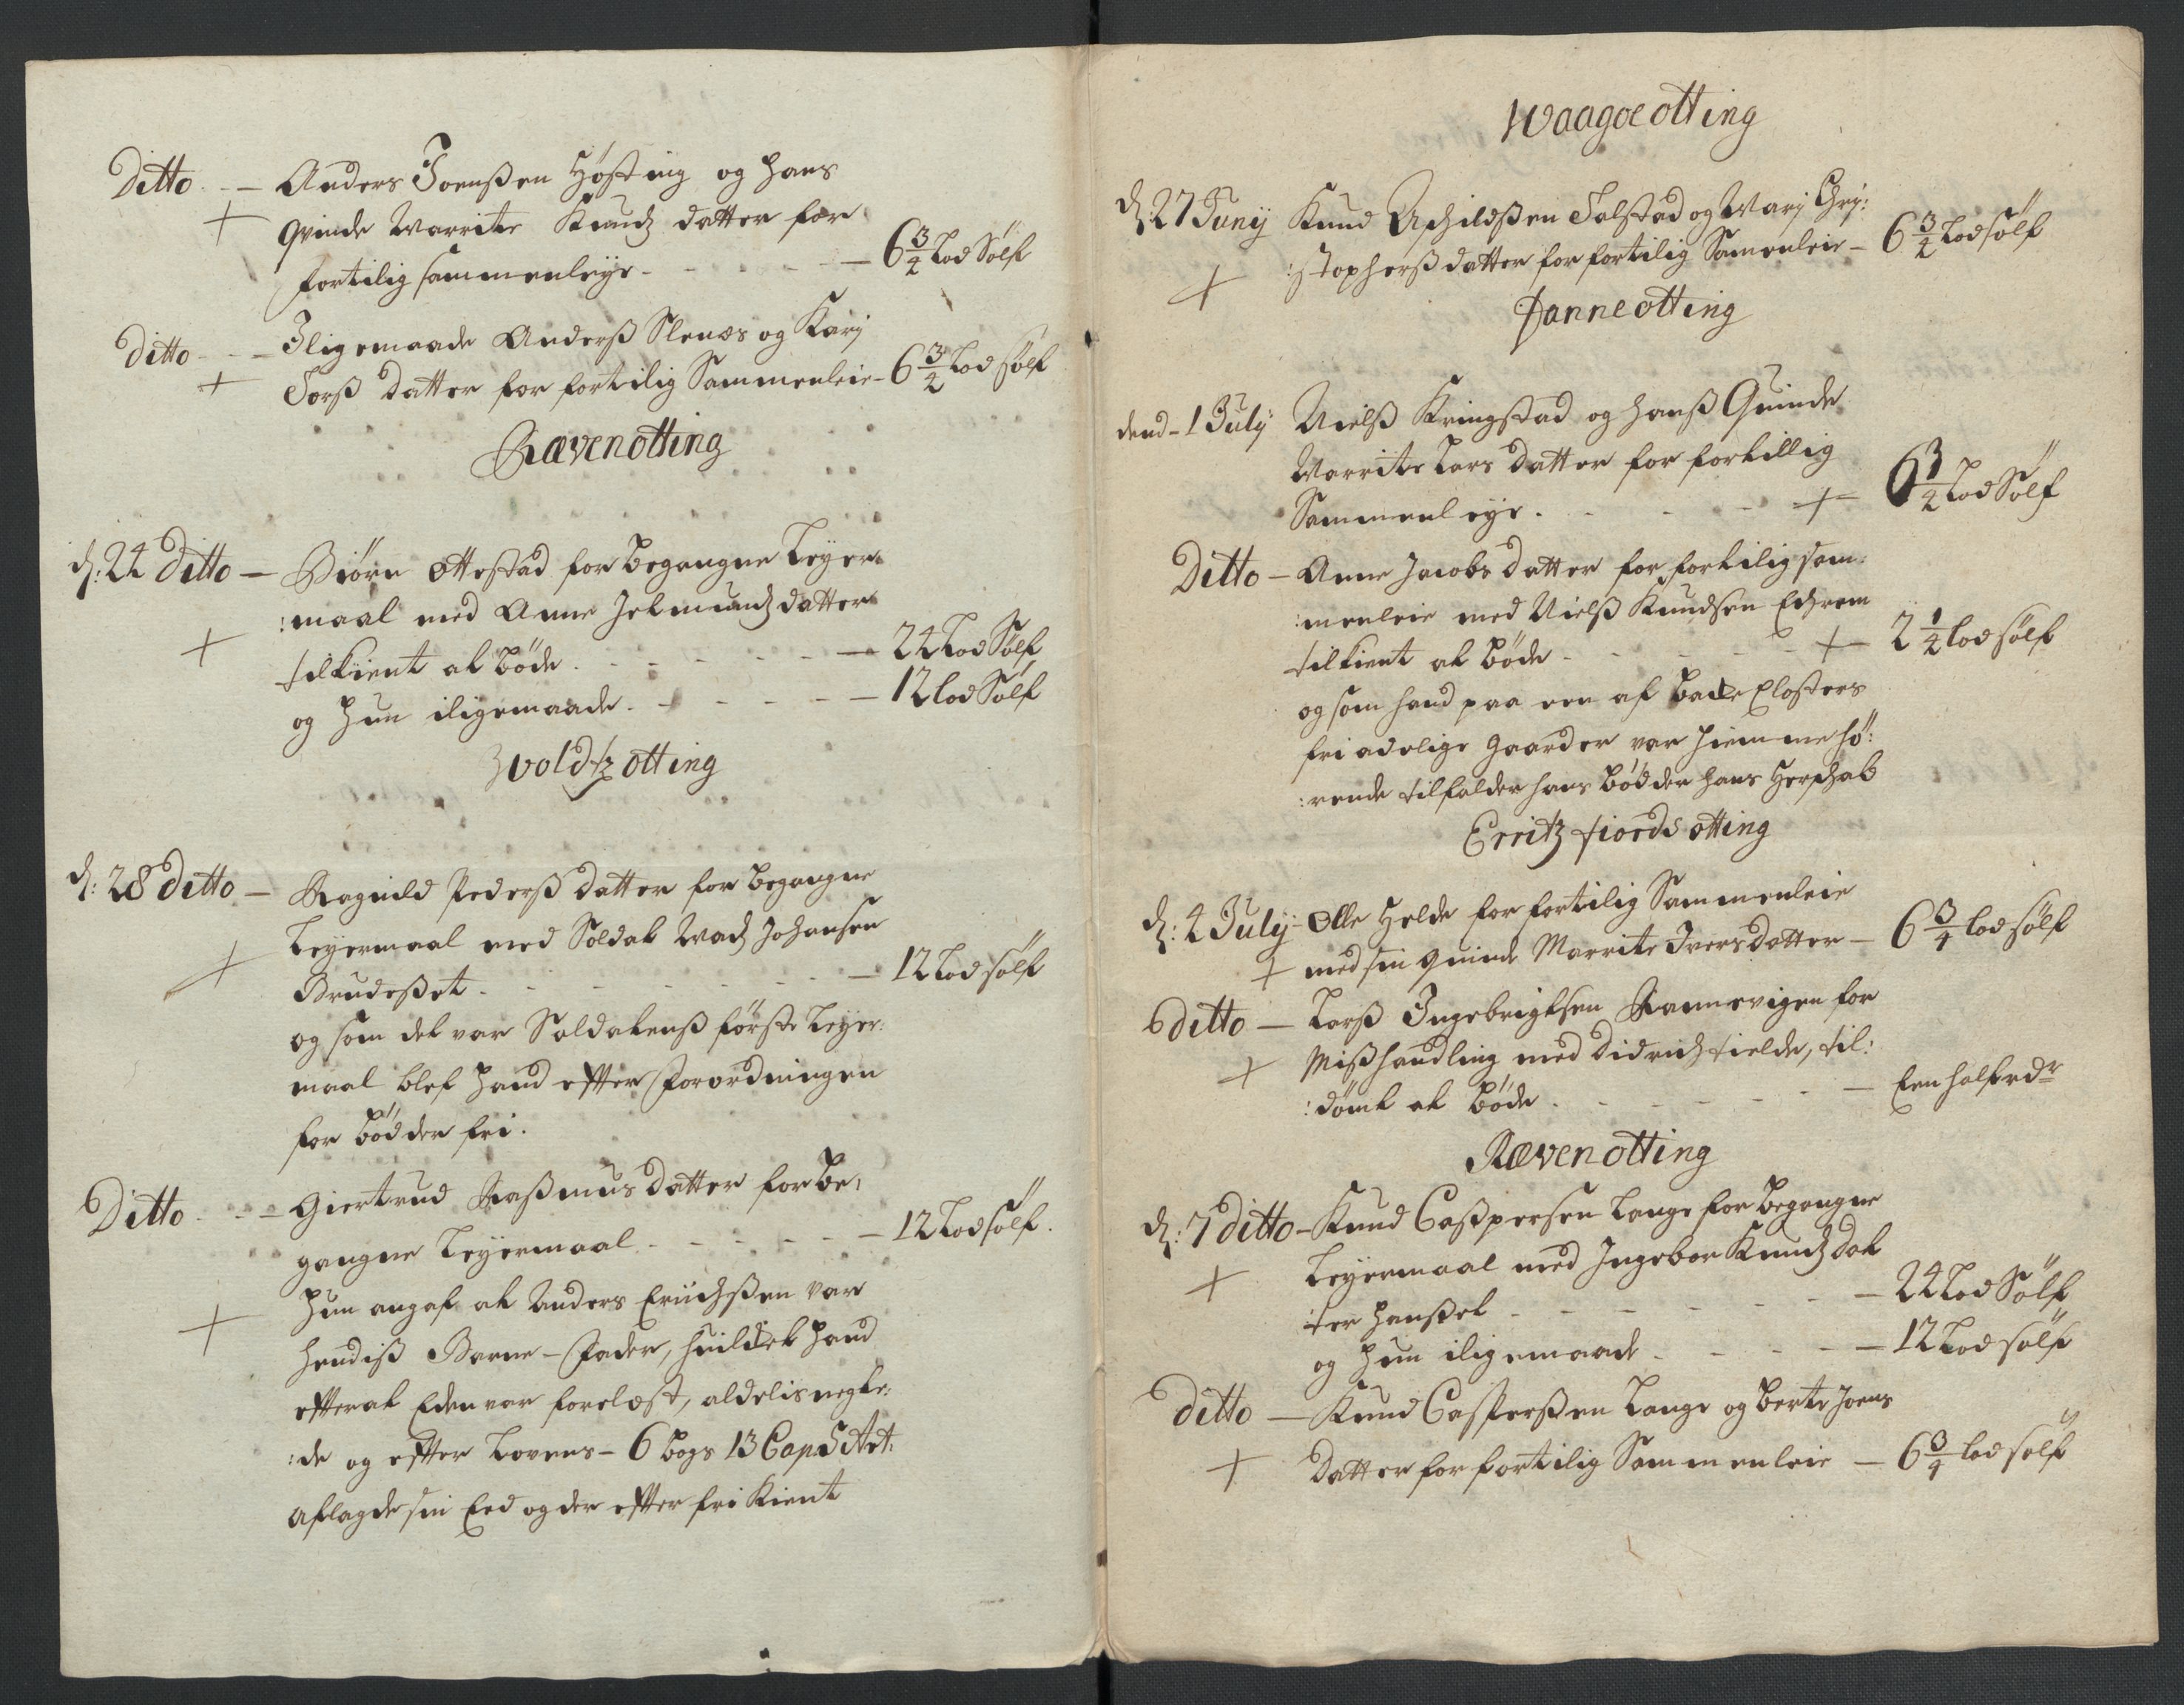 Ditto - - Anders Joensßen Høsting og hans
+ qvinde Marrite Knudz datter for
fortilig sammenleye - - - 6 3/4 Lod Sølf
Ditto - - Iligemaade Anderß Slenes og Karj
+ Torß datter for fortilig Sammenleie - 6 3/4 Lod sølf
Rævenotting
d: 24 Ditto - Biørn Ottestad for begangne Leyer:
:maal med Anne Jetmundz datter
+ tilkient at bøde - - - 24 Lod Sølf
og hun iligemaade - - - 12 Lod Sølf
Voldtz otting
d: 28 Ditto - Ragnild Pederß datter for begangne
Leyermaal med Soldat Madz Johansen
+ Brudeßet - - - 12 Lod sølf
og som det var Soldatenß første Leyer:
maal blef hand efter Forordningen
for bødder fri.
Ditto - - Giertrud Raßmus datter for be:
gangne Leyermaal - - - 12 Lod sølf.
Hun angaf at Anders Erichßen var
+ hendiß Barne-Fader, huilket hand
efter at Eden var forelæst, aldelis negte:
:de og efter Lovens - 6 bogs 13 Cap: 5 Art:
aflagde sin Eed og der efter fri Kient
Waagøe otting
d: 27 Junij Knud Aschildßen Talstad og Marj Chri:
+ :stopherß datter for fortilig Samenleie - 6 3/4 Lod sølf
Fanne otting
dend - 1 July Nielß Kringstad og hanß Quinde
Marrite Lars datter for fortillig
Sammenleye - - - + 6 3/4 Lod Sølf
Ditto - Anne Jacobs datter for fortilig sam:
:menleie med Nielß Knudsen
tilkient at bøde - - - + 2 1/4 lod sølf
og som hand paa een af Backe Closters
fri adelige gaarder var hiemmehø:
:rende tilfalder hans bødder hans Herschab
Erritz fiords otting
d: 4 July - Olle Helde for fortilig Sammenleie
+ med sin quinde Marrite Ivers datter - 6 3/4 lod sølf
Ditto - Larß Ingebrigtsen Rannevigen for
+ Mißhandling med Didrich Fielde, til:
:dømt at bøde - - - Een half rdr
Rævenotting
d: 7 ditto - Knud Caßpersen Lange for begangne
+ Leyermaal med Ingebor Knudz dat
:ter Hanßet - - - 24 Lod Sølf
og hun iligemaade - - - 12 Lod sølf
Ditto - Knud Casperßen Lange og berte Joens
+ datter for fortilig Sammenleie - 6 3/4 lod sølf